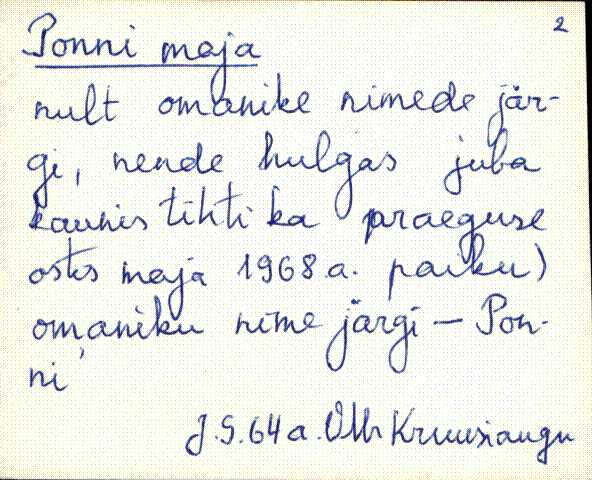 2
Ponni maja
nult omanike nimede jär-
gi, nende hulgas juba
kaunis tihti ka praeguse
ostis maja 1968.a. paiku)
omaniku nime järgi - Pon-
ni
J.S. 64 a.